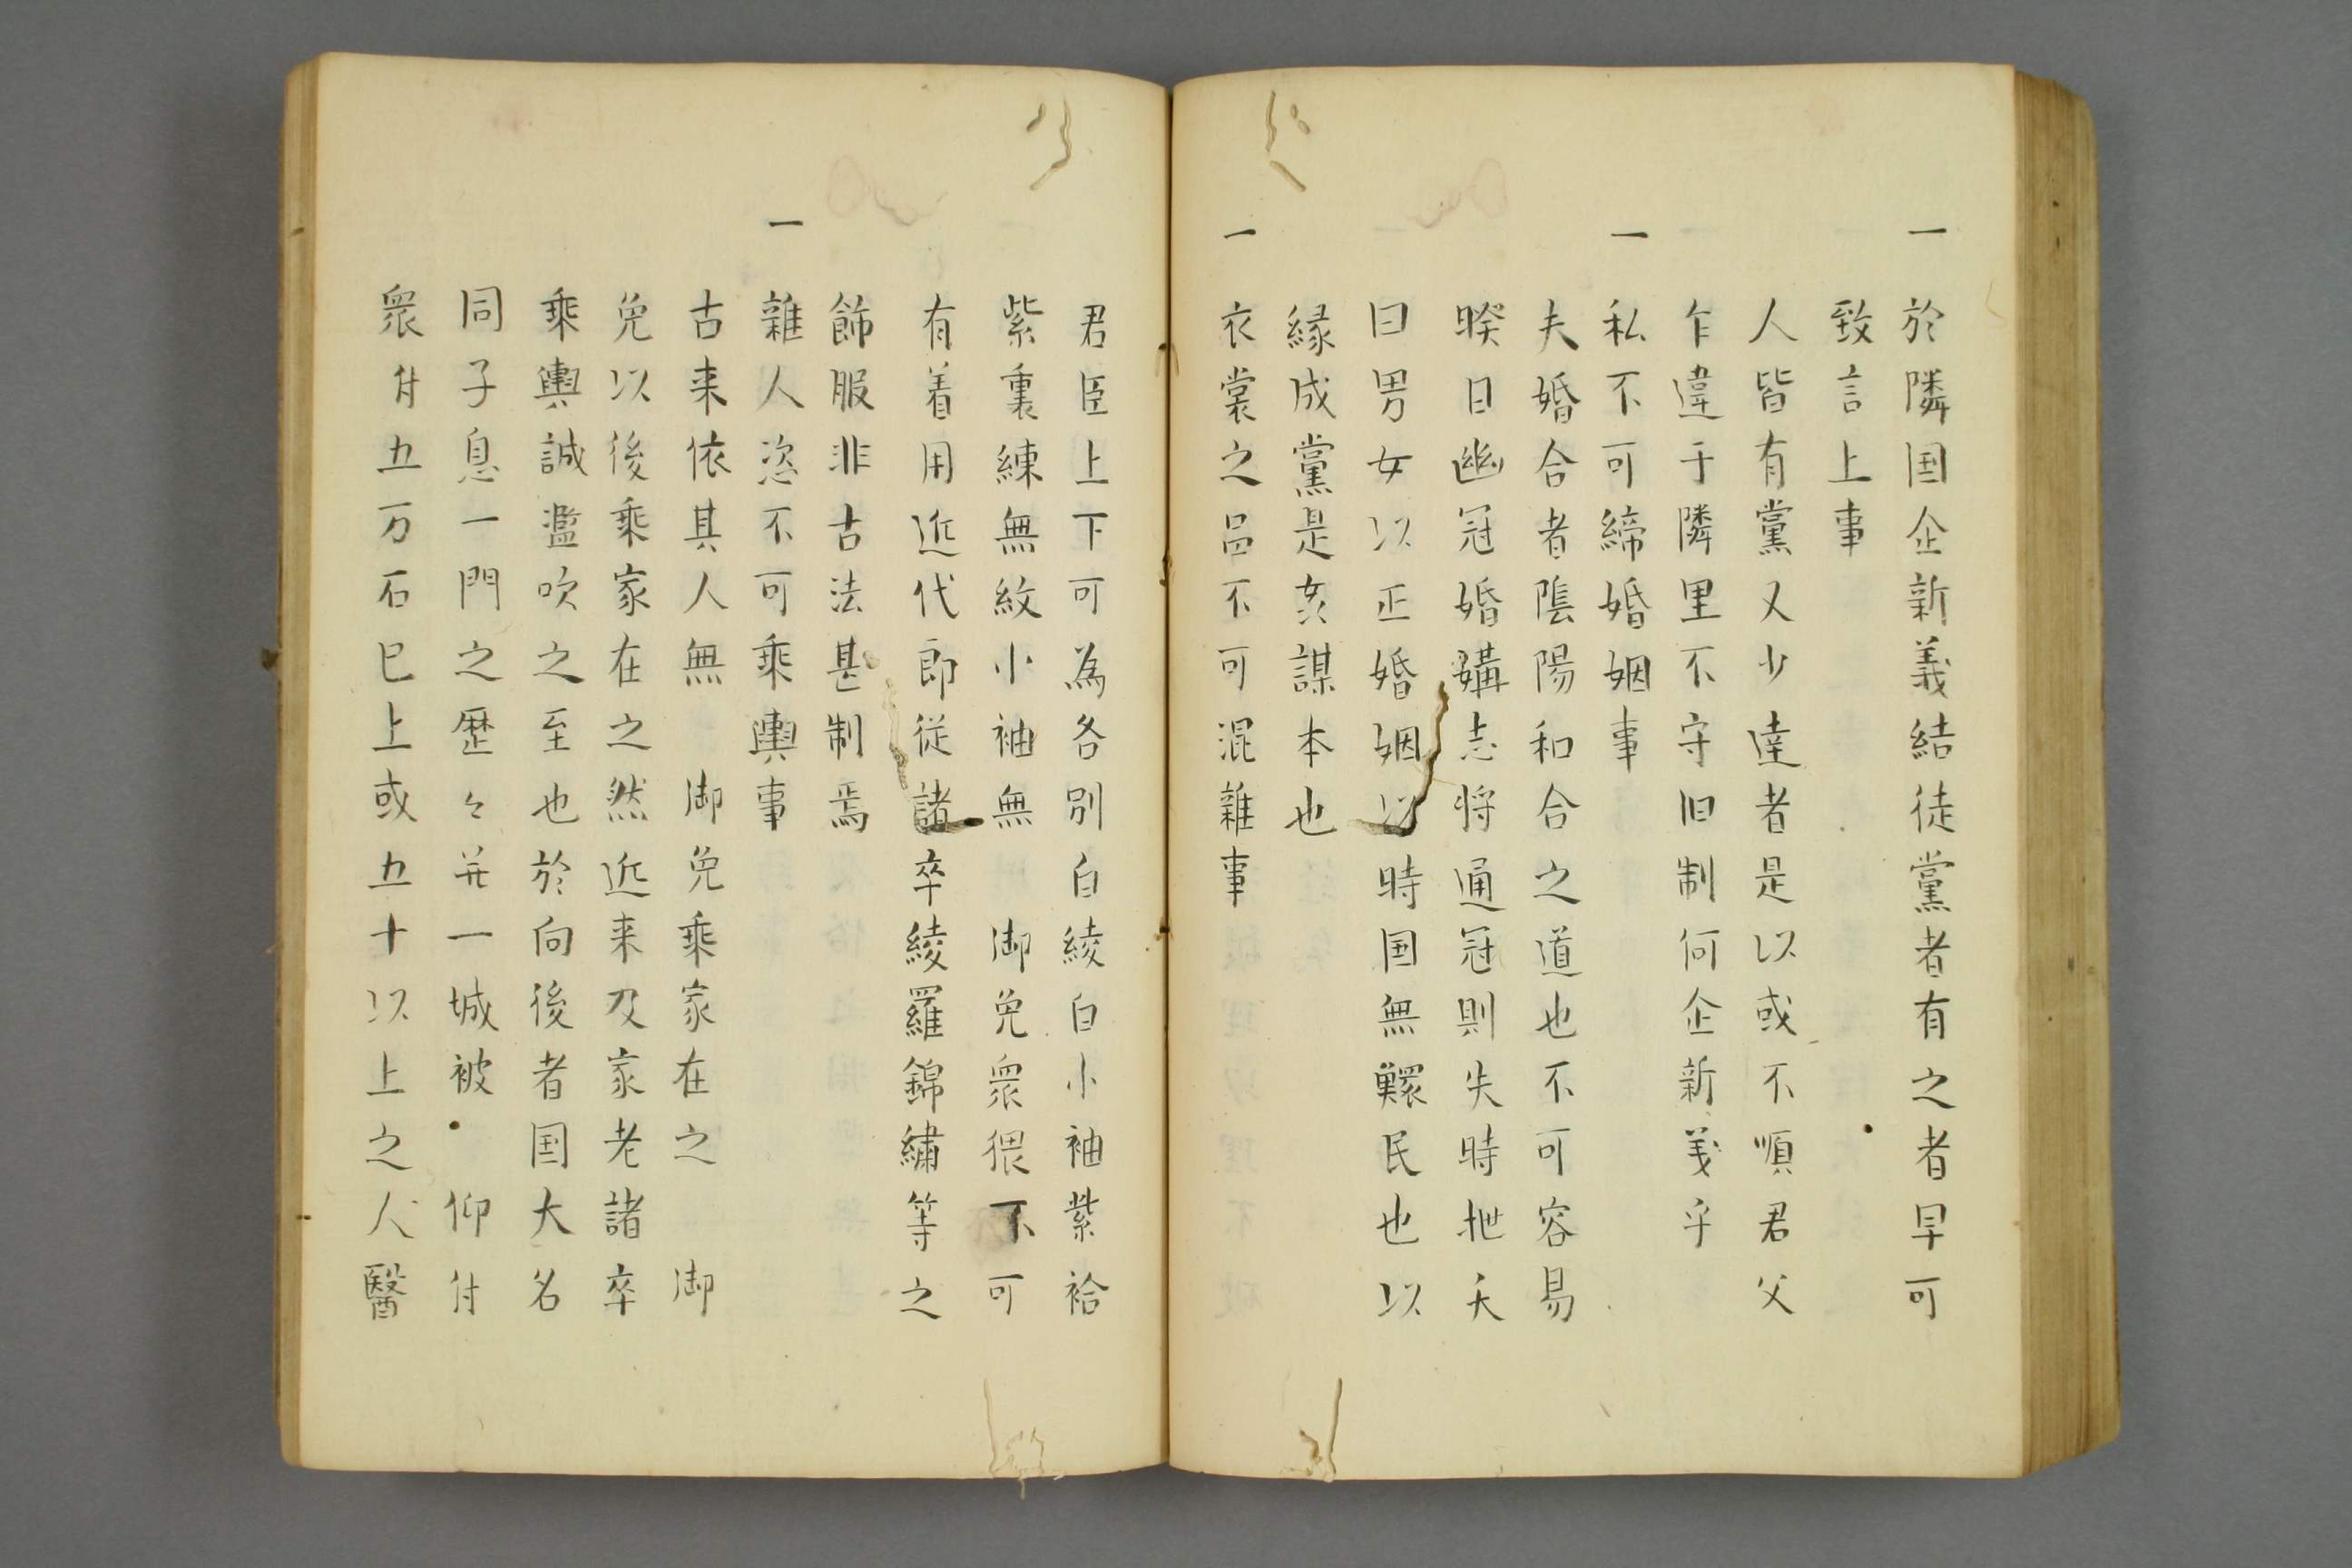 一 於隣国企新義結徒黨者有之者早可
致言上事
人皆有黨又少達者是以或不順君父
乍違于隣里不守旧制何企新義乎
一 私不可締婚姻事
夫婚合者陰陽和合之道也不可容易
睽曰幽冦婚媾志将通冦則失時
曰男女以正婚姻以時国無鰥民也以
縁成黨是姦謀本也
一 衣裳之品不可混雜事
君臣上下可為各別白綾白小袖紫袷
紫裏練無紋小袖無　御免衆猥不可
有着用近代郎従諸卒綾羅錦繡等之
飾服非古法甚制焉
一 雜人恣不可乘輿事
古来依其人無　御免乘家在之　御
免以後乘家在之然近来及家老諸卒
乘輿誠濫吹之至也於向後者国大名
同子息一門之歷々并一城被　仰付
衆付五万石已上或五十以上之人醫